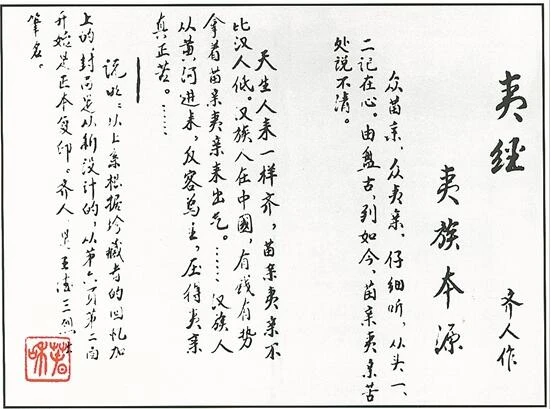 夷经
夷族本源
齐人作
众苗亲、众夷亲、仔细听,从头一、
二记在心。由盘古,到如今,苗亲夷亲苦
处说不清。
天生人来一样齐,苗亲夷亲不
比汉人低。汉族人在中國,有钱有势
拿着苗亲夷亲来出气。……汉族人
从黄河进来,反客為主,压得夷亲
真正苦。……
说明:以上系根据珍藏者的回忆加
上的,封面是从新设计的,从第六页第二面
开始是正本复印。齐人 是王三烈士
笔名。